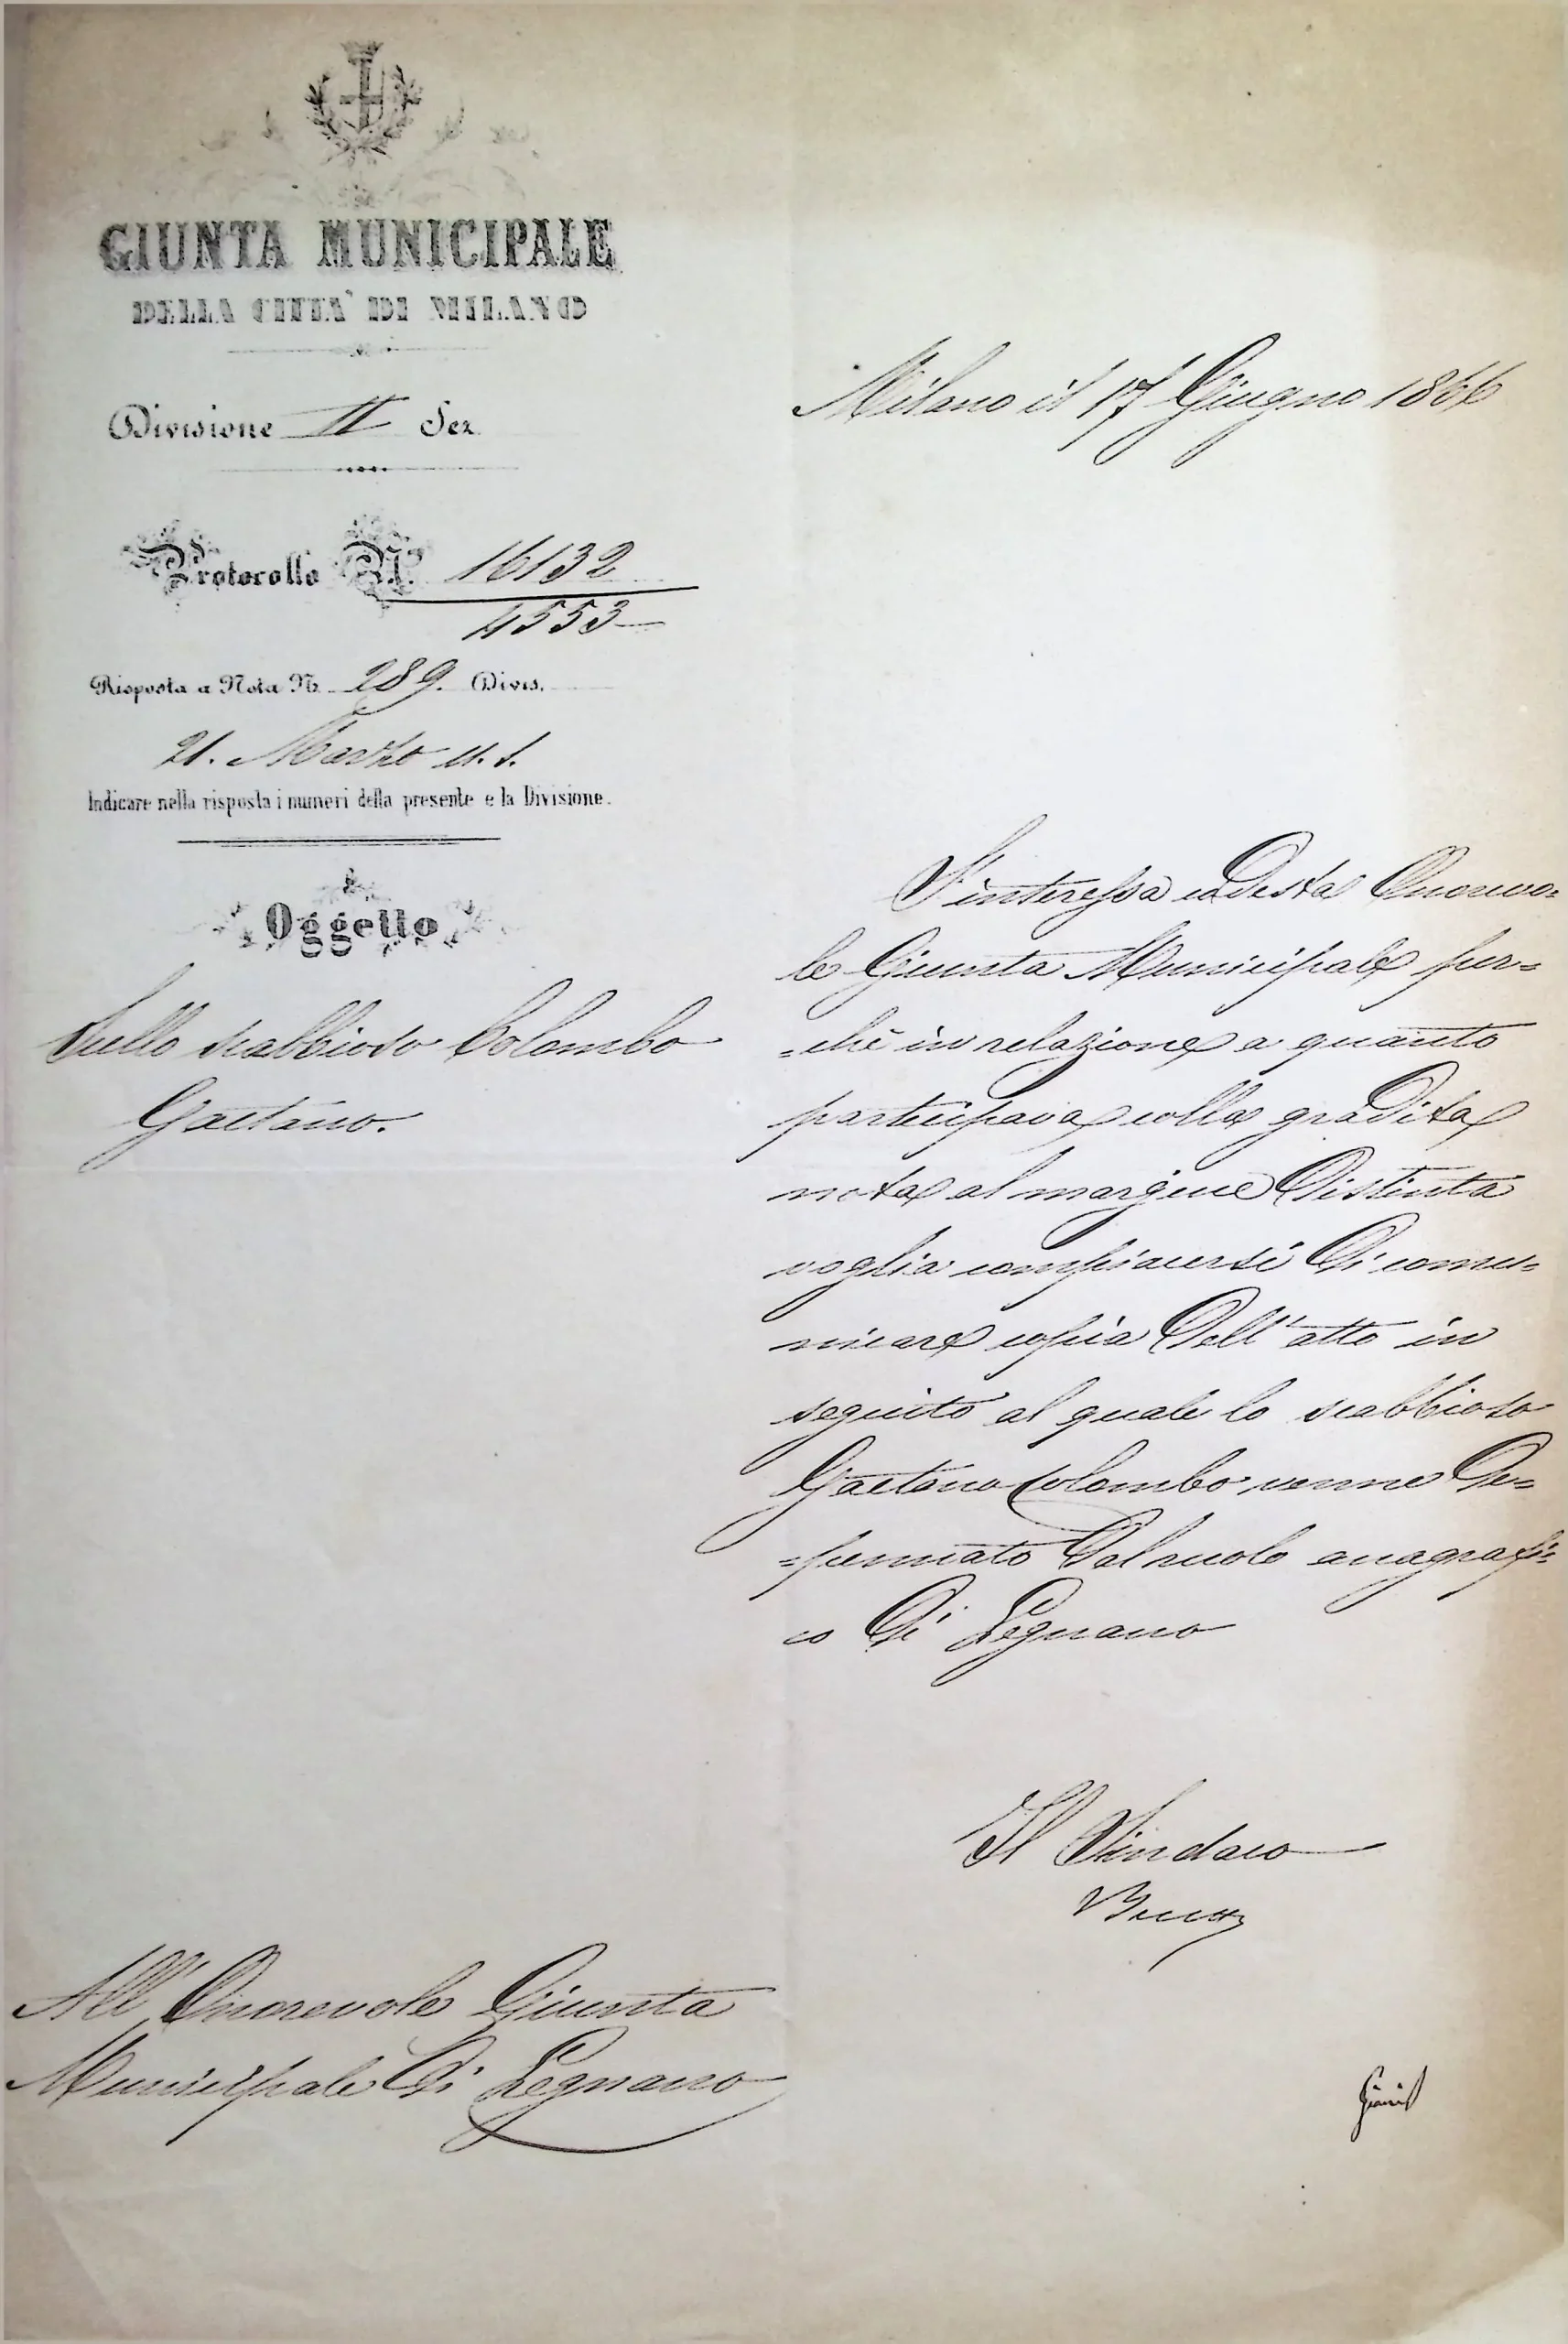 GIUNTA MUNICIPALE
DELLA CITTA' DI MILANO
Divisione II Sez.
Protocollo N. 16132
4553
Risposta a Nota N. 289. Divis.
21. Marzo u. s.
Indicare nella risposta i numeri della presente e la Divisione.
Oggetto
Sullo scabbioso Colombo
Gaetano.
All' Onorevole Giunta
Municipale di Legnano
Milano il 17 Giugno 1866
S'interessa codesta Onorevo=
le Giunta Municipale per=
=chè in relazione a quanto
partecipava colla gradita
nota al margine distinta
voglia compiacersi di comu=
nicare copia dell' atto in
seguito al quale lo scabbioso
Gaetano Colombo venne de=
=pennato dal ruolo anagrafi=
co di Legnano
Il Sindaco